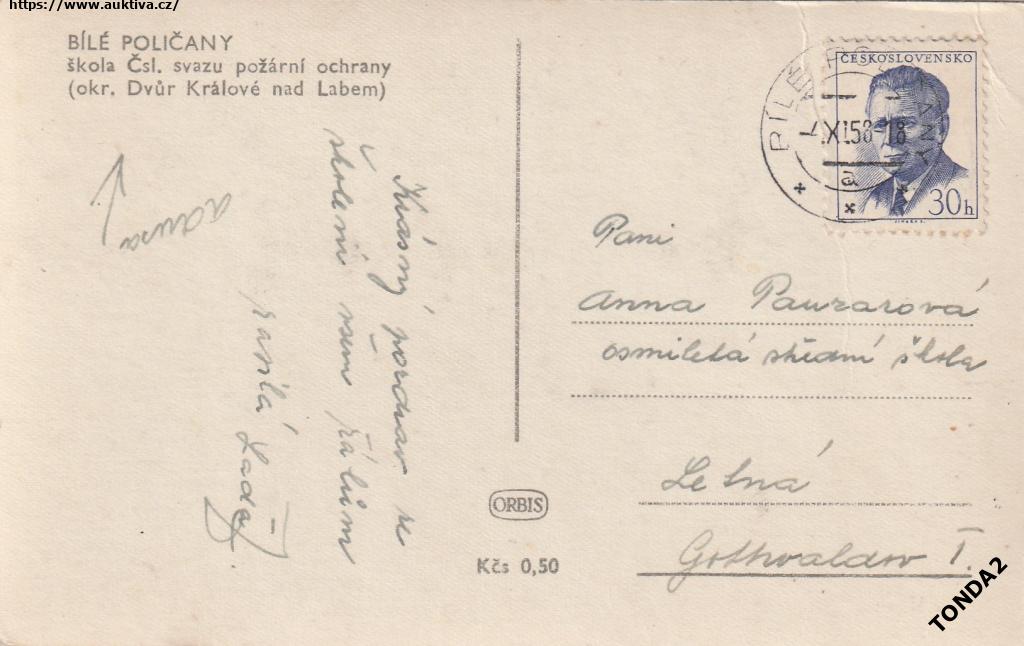 https://www.auktiva.cz/
BÍLÉ POLIČANY
škola Čsl. svazu požární ochrany
(okr. Dvůr Králové nad Labem)
Krásný pozdrav ze
školení všem
Laďa
ČESKOSLOVENSKO
30h
BÍLÉ POLIČANY
XI.58-18
Paní
Anna
osmiletá střední škola
Letná
Gottwaldov I.
ORBIS
Kčs 0,50
TONDA2